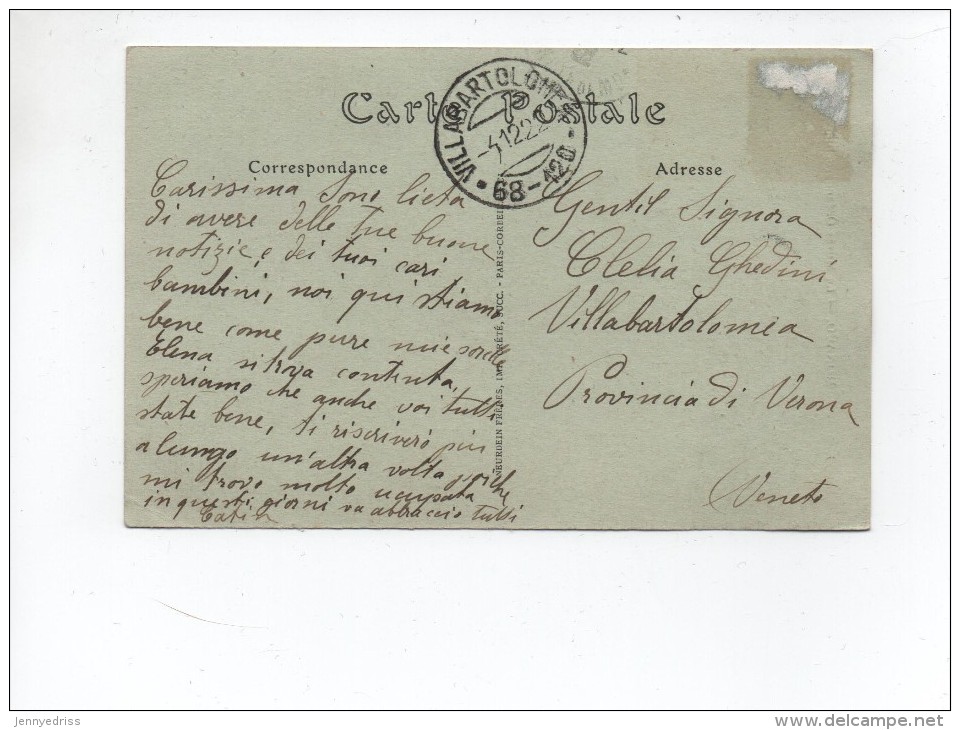 Carte Postale
VILLABARTOLOMEA
-4.12.22
68-420
Correspondance
Adresse
Carissima Sono lieta
di avere delle tue buone
notizie e dei tuoi cari
bambini, noi qui stiamo
bene come pure mie sorelle
Elena si trova contenta,
speriamo che anche voi tutti
state bene, ti riscriverò più
a lungo un'altra volta perchè
mi trovo molto ocupata
in questi giorni va abbraccio tutti
NEURDEIN FRÈRES, IMP. CRÉTÉ, SUCC. - PARIS-CORBEIL
Gentil Signora
Clelia Ghedini
Villabartolomea
Provincia di Verona
Veneto
jennyedriss
www.delcampe.net